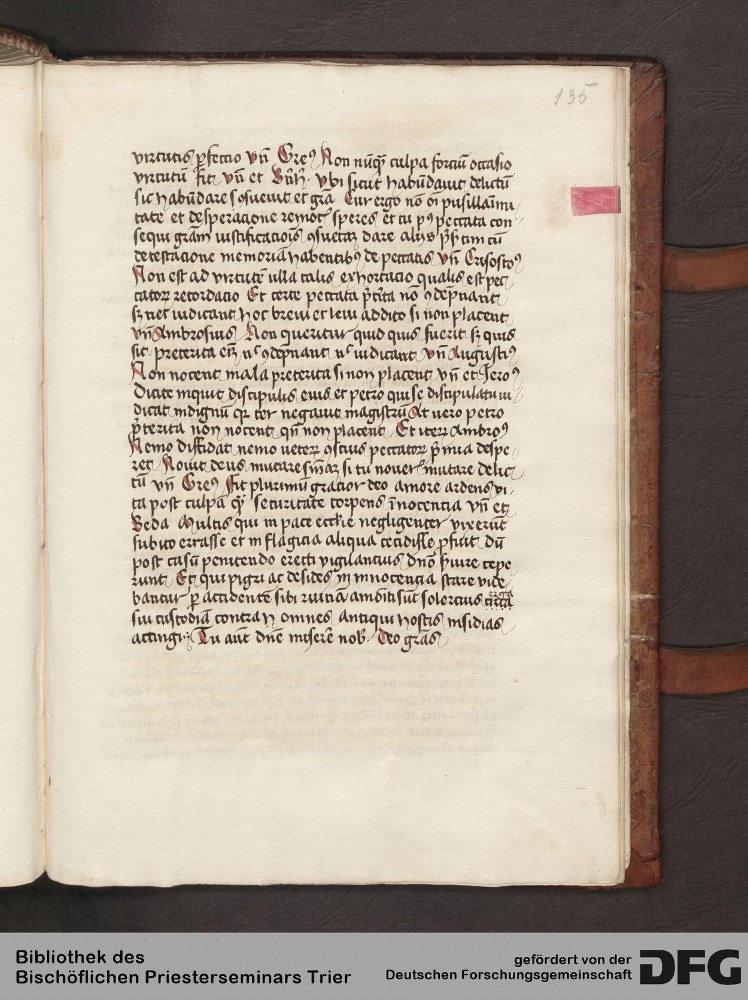 135
virtutis ꝑfectio vn̄ Greꝰ Non nūqͣ culpa forciū occasio
virtutū fit vn̄ et Bn̄h. vbi sicut habūdauit delictū
sic habūdare ꝯsueuit et grā Cur ergo nō oī pusillaīmi
tate et desperacione remot speres et tu pꝰ peccata con
sequi grām iustificacioīs ꝯsuetā dare alijs p̄ſtim cū
detestacione memoriā habentibꝰ de peccatis vn̄ Crisostoꝰ
Non est ad virtutē ulla talis exhortacio qualis est pec
catoꝝ recordacio Et certe peccata p̄tīta nō ꝯdēpnant
sꝫ nec iudicant hoc breui et leui addito si non placent
vn̄ Ambrosius Non queritur quid quis fuerit sꝫ quis
sit preterita eīm nͨ ꝯdēpnant nͨ iudicant vn̄ Augustiꝰ
Non nocent mala preterita si non placent vn̄ et Ieroꝰ
Dicite inquit discipulis eius et petro qui se discipulatu iu
dicat indignū qꝛ ter negauit magistrū At uero petro
p̄terita non nocent qn̄ non placent Et iteꝝ Ambroꝰ
Nemo diffidat nemo ueteꝝ ꝯscius peccatoꝝ p̄mia despe
ret Nouit deus mutare sniaꝫ si tu noueris mutare delic
tū vn̄ Greꝰ Fit plurimū gracior deo amore ardens vi
ta post culpā qͣ securitate torpens īnocencia vn̄ et
Beda Multis qui in pace ecclie negligenter vixerūt
subito errasse et in flagicia aliqua cecidisse ꝓfuit dū
post casū penitendo erecti vigilancius dn̄o ſuire cepe
runt Et qui pigri ac desides in innocencia stare vide
bantur ꝑ accidentē sibi ruinā amōiti sūt solercius circa
sui custodiā contra oēs antiqui hostis insidias
accingi Tu aūt dn̄e miserē nob. Deo grās
Bibliothek des
Bischöflichen Priesterseminars Trier
gefördert von der
Deutschen Forschungsgemeinschaft
DFG